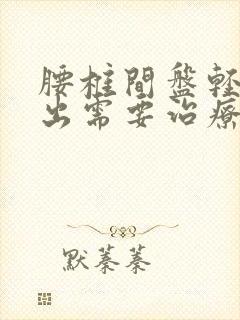 腰柱間盤輕
出需要治療
默蓁蓁